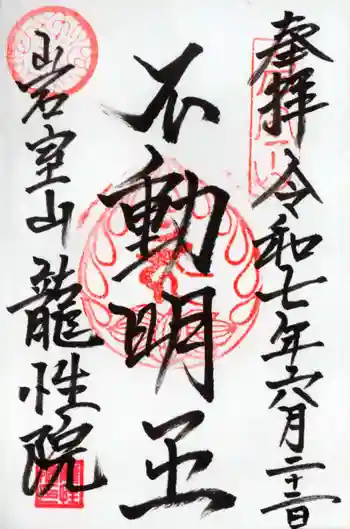 奉拝 令和七年六月二十二日
不動明王
岩室山 龍性院